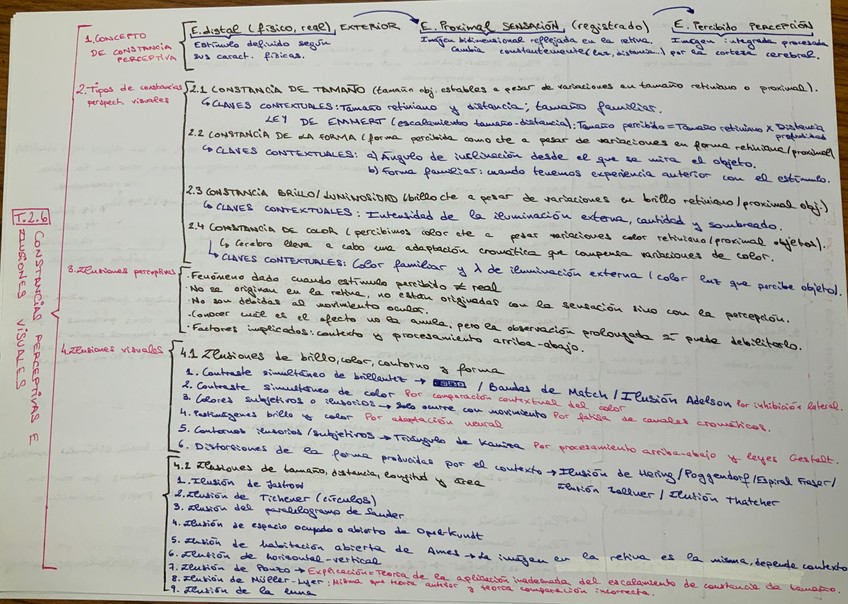 T.2.6 CONSTANCIAS PERCEPTIVAS E
ILUSIONES VISUALES
1. CONCEPTO
DE CONSTANCIA
PERCEPTIVA
E. distal (físico, real) EXTERIOR E. Proximal SENSACIÓN (registrado) E. Percibido PERCEPCIÓN
Estímulo definido según Imagen bidimensional reflejada en la retina. Imagen integrada procesada
sus caract. físicas. Cambia constantemente (luz, distancia...) por la corteza cerebral.
2. Tipos de constancias
perspect. visuales
2.1 CONSTANCIA DE TAMAÑO (tamaño obj. estables a pesar de variaciones en tamaño retiniano o proximal).
↳ CLAVES CONTEXTUALES: Tamaño retiniano y distancia; tamaño familiar.
LEY DE EMMERT (escalamiento tamaño-distancia); Tamaño percibido = Tamaño retiniano x Distancia
profundidad
2.2 CONSTANCIA DE LA FORMA (forma percibida como cte a pesar de variaciones en forma retiniana/proximal)
↳ CLAVES CONTEXTUALES: a) Ángulo de inclinación desde el que se mira el objeto.
b) Forma familiar: cuando tenemos experiencia anterior con el estímulo.
2.3 CONSTANCIA BRILLO/LUMINOSIDAD (brillo cte a pesar de variaciones en brillo retiniano/proximal obj.)
↳ CLAVES CONTEXTUALES: Intensidad de la iluminación externa, cantidad y sombreado.
2.4 CONSTANCIA DE COLOR (percibimos color cte a pesar variaciones color retiniano/proximal objetos).
↳ Cerebro lleva a cabo una adaptación cromática que compensa variaciones de color.
↳ CLAVES CONTEXTUALES: Color familiar y λ de iluminación externa (color luz que percibe objeto).
3. Ilusiones perceptivas
- Fenómeno dado cuando estímulo percibido ≠ real
- No se originan en la retina, no están originadas con la sensación sino con la percepción.
- No son debidas al movimiento ocular.
- Conocer cuál es el efecto no la anula, pero la observación prolongada sí puede debilitarlo.
- Factores implicados: contexto y procesamiento arriba-abajo.
4. Ilusiones visuales
4.1 Ilusiones de brillo, color, contorno y forma
1. Contraste simultáneo de brillantez → / Bandas de Match / Ilusión Adelson Por inhibición lateral.
2. Contraste simultáneo de color Por comparación contextual del color
3. Colores subjetivos o ilusorios → Solo ocurre con movimiento Por fatiga de canales cromáticos.
4. Postimágenes brillo y color Por adaptación neural
5. Contornos ilusorios/subjetivos → Triángulo de Kaniza Por procesamiento arriba-abajo y leyes Gestalt.
6. Distorsiones de la forma producidas por el contexto → Ilusión de Hering/Poggendorf/Espiral Fraser/
Ilusión Zollner / Ilusión Thatcher
4.2 Ilusiones de tamaño, distancia, longitud y área
1. Ilusión de Jastrow
2. Ilusión de Tichener (círculos)
3. Ilusión del paralelogramo de Sander
4. Ilusión de espacio ocupado o abierto de Operkundt
5. Ilusión de habitación abierta de Ames → La imagen en la retina es la misma, depende contexto
6. Ilusión de horizontal-vertical
7. Ilusión de Ponzo → Explicación = Teoría de la aplicación inadecuada del escalamiento de constancia de tamaño.
8. Ilusión de Müller-Lyer: Misma que teoría anterior y teoría comparación incorrecta.
9. Ilusión de la luna